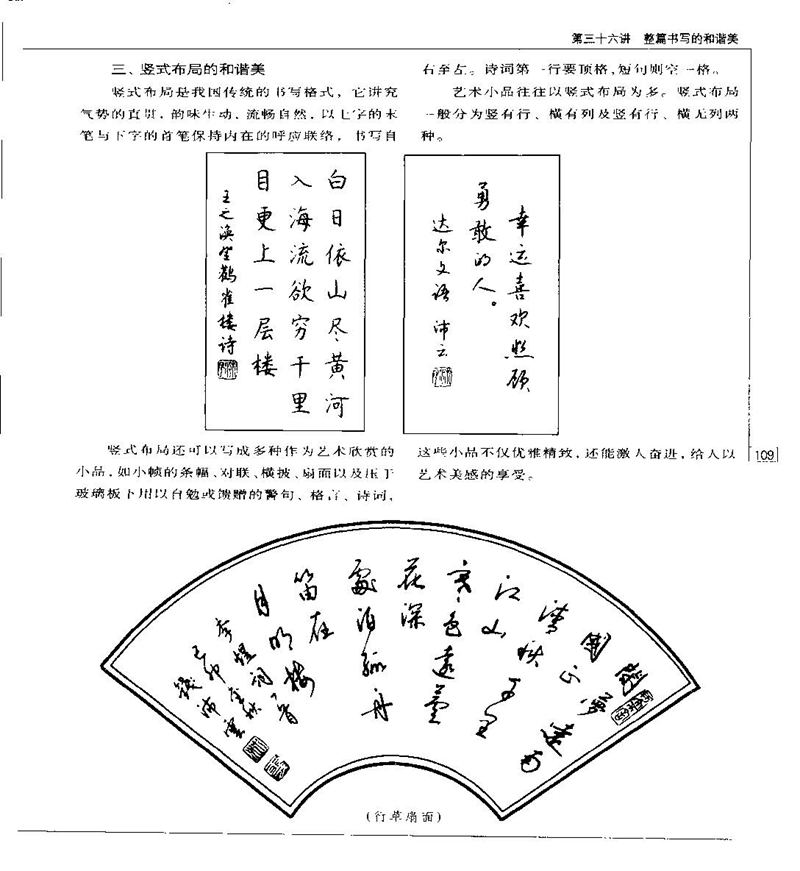 第三十六讲 整篇书写的和谐美
三、竖式布局的和谐美
竖式布局是我国传统的书写格式，它讲究
气势的直贯，韵味生动，流畅自然，以上字的末
笔与下字的首笔保持内在的呼应联络，书写自
右至左。诗词第一行要顶格，短句则空一格。
艺术小品往往以竖式布局为多。竖式布局
一般分为竖有行、横有列及竖有行、横无列两
种。
白日依山尽黄河
入海流欲穷千里
目更上一层楼
王之涣登鹳雀楼诗
幸运喜欢照顾
勇敢的人。
达尔文语 沛云
竖式布局还可以写成多种作为艺术欣赏的
小品，如小帧的条幅、对联、横披、扇面以及压于
玻璃板下用以自勉或馈赠的警句、格言、诗词，
这些小品不仅优雅精致，还能激人奋进，给人以
艺术美感的享受。
109
閒夢遠南
國正
清秋千里
江山
寒色遠蘆
花深
處泊孤舟
笛在
月明樓
李煜詞一首
己卯金秋
錢沛雲
(行草扇面)